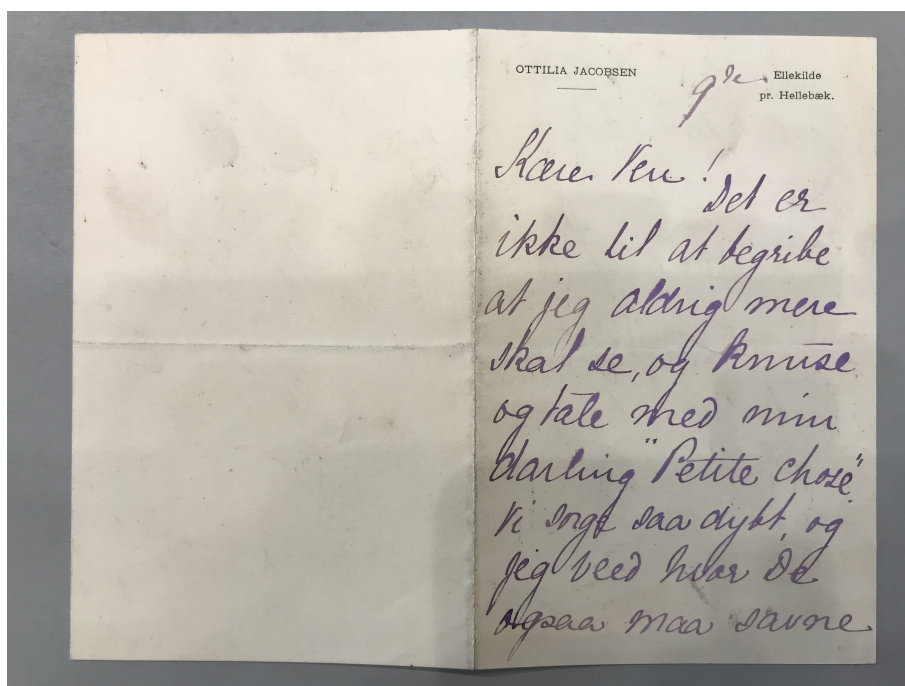 OTTILIA JACOBSEN
9de
Ellekilde
pr. Hellebæk.
Kære Ven!
Det er
ikke til at begribe
at jeg aldrig mere
skal se, og knuse
og tale med min
darling "Petite chose"
Vi sørge saa dybt, og
jeg veed hvor De
ogsaa maa savne